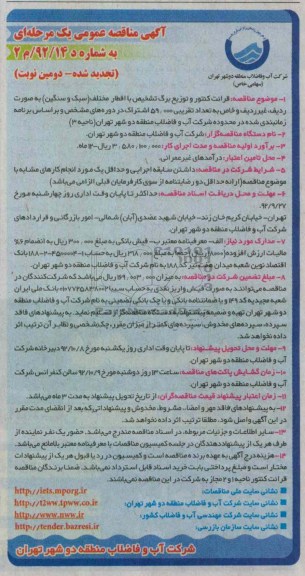 آگهی مناقصه عمومی یک مرحله‌ای
به شماره د ۹۲/۱۴/م۲
(تجدید شده - دومین نوبت)
شرکت آب و فاضلاب منطقه دو شهر تهران
(سهامی خاص)
۱- موضوع مناقصه: قرائت کنتور و توزیع برگ تشخیص با اقطار مختلف (سبک و سنگین) به صورت
ردیف، غیرردیف و خاص به تعداد تقریبی ۵۹۰,۰۰۰ اشتراک در دوره‌های مشخص و بر اساس برنامه
زمانبندی شده در محدوده شرکت آب و فاضلاب منطقه دو شهر تهران (ناحیه ۳)
۲- نام دستگاه مناقصه‌گزار: شرکت آب و فاضلاب منطقه دو شهر تهران.
۳- برآورد اولیه مناقصه و مدت اجرای کار: ریال - ۱۲ ماه.
۴- محل تامین اعتبار: درآمدهای غیرعمرانی.
۵- شرایط شرکت در مناقصه: داشتن سابقه اجرایی و حداقل یک مورد انجام کارهای مشابه با
موضوع مناقصه (ارائه حداقل دو رضایتنامه از سوی کارفرمایان قبلی الزامی می‌باشد)
۶- مهلت و محل دریافت اسناد مناقصه: حداکثر تا پایان وقت اداری روز چهارشنبه مورخ
۹۲/۹/۲۷
تهران - خیابان کریم خان زند - خیابان شهید عضدی (آبان) شمالی - امور بازرگانی و قراردادهای
شرکت آب و فاضلاب منطقه دو شهر تهران.
۷- مدارک مورد نیاز: الف- معرفینامه معتبر ب- فیش بانکی به مبلغ ۳۰۰,۰۰۰ ریال به انضمام ۶٪
مالیات ارزش افزوده (۱۸,۰۰۰ ریال) جمعا به مبلغ ۳۱۸,۰۰۰ ریال به حساب بانک
اقتصاد نوین شعبه میدان به نام شرکت آب و فاضلاب منطقه دو شهر تهران.
۸- مبلغ تضمین شرکت در مناقصه: به میزان ریال می‌باشد که شرکت‌کنندگان در
مناقصه می‌توانند به صورت فیش واریز نقدی به حساب بانک ملی ایران
شعبه مجیدیه کد ۱۴۹ و یا ضمانتنامه بانکی و یا چک بانکی تضمینی به نام شرکت آب و فاضلاب منطقه
دو شهر تهران تهیه و ضمیمه پیشنهادات به دستگاه مناقصه‌گزار تسلیم نماید. به پیشنهادهای فاقد
سپرده، سپرده‌های مخدوش، سپرده‌های کمتر از میزان مقرر، چک شخصی و نظایر آن ترتیب اثر
داده نخواهد شد.
۹- مهلت و محل تحویل پیشنهاد: تا پایان وقت اداری روز یکشنبه مورخ ۹۲/۱۰/۸ دبیرخانه شرکت
آب و فاضلاب منطقه دو شهر تهران.
۱۰- زمان گشایش پاکت‌های مناقصه: ساعت ۱۳ روز دوشنبه مورخ ۹۲/۱۰/۹ سالن کنفرانس شرکت
آب و فاضلاب منطقه دو شهر تهران.
۱۱- زمان اعتبار پیشنهاد قیمت مناقصه‌گران: از تاریخ تحویل پیشنهاد به مدت ۳ ماه می‌باشد.
۱۲- به پیشنهادهای فاقد مهر و امضا، مشروط، مخدوش و پیشنهاداتی که بعد از انقضای مدت مقرر
در این آگهی واصل شود، مطلقا ترتیب اثر داده نخواهد شد.
۱۳- سایر اطلاعات و جزئیات مربوطه، در اسناد مناقصه مندرج می‌باشد. حضور یک نفر نماینده از
طرف هر یک از پیشنهاددهندگان در جلسه کمیسیون مناقصات با معرفینامه معتبر بلامانع می‌باشد.
۱۴- هزینه درج آگهی به عهده برنده مناقصه است و کمیسیون در رد یا قبول هر یک از پیشنهادات
مختار است و مبلغ پرداختی بابت خرید اسناد قابل استرداد نمی‌باشد. ضمنا برندگان مناقصه
قرائت کنتور ناحیه ۱ و ۲ مجاز به شرکت در این مناقصه نمی‌باشند.
نشانی سایت ملی مناقصات: http://iets.mporg.ir
نشانی سایت شرکت آب و فاضلاب منطقه دو شهر تهران: http://t2ww.tpww.co.ir
نشانی سایت شرکت مهندسی آب و فاضلاب کشور: http://www.nww.ir
نشانی سایت سازمان بازرسی: http://tender.bazresi.ir
شرکت آب و فاضلاب منطقه دو شهر تهران